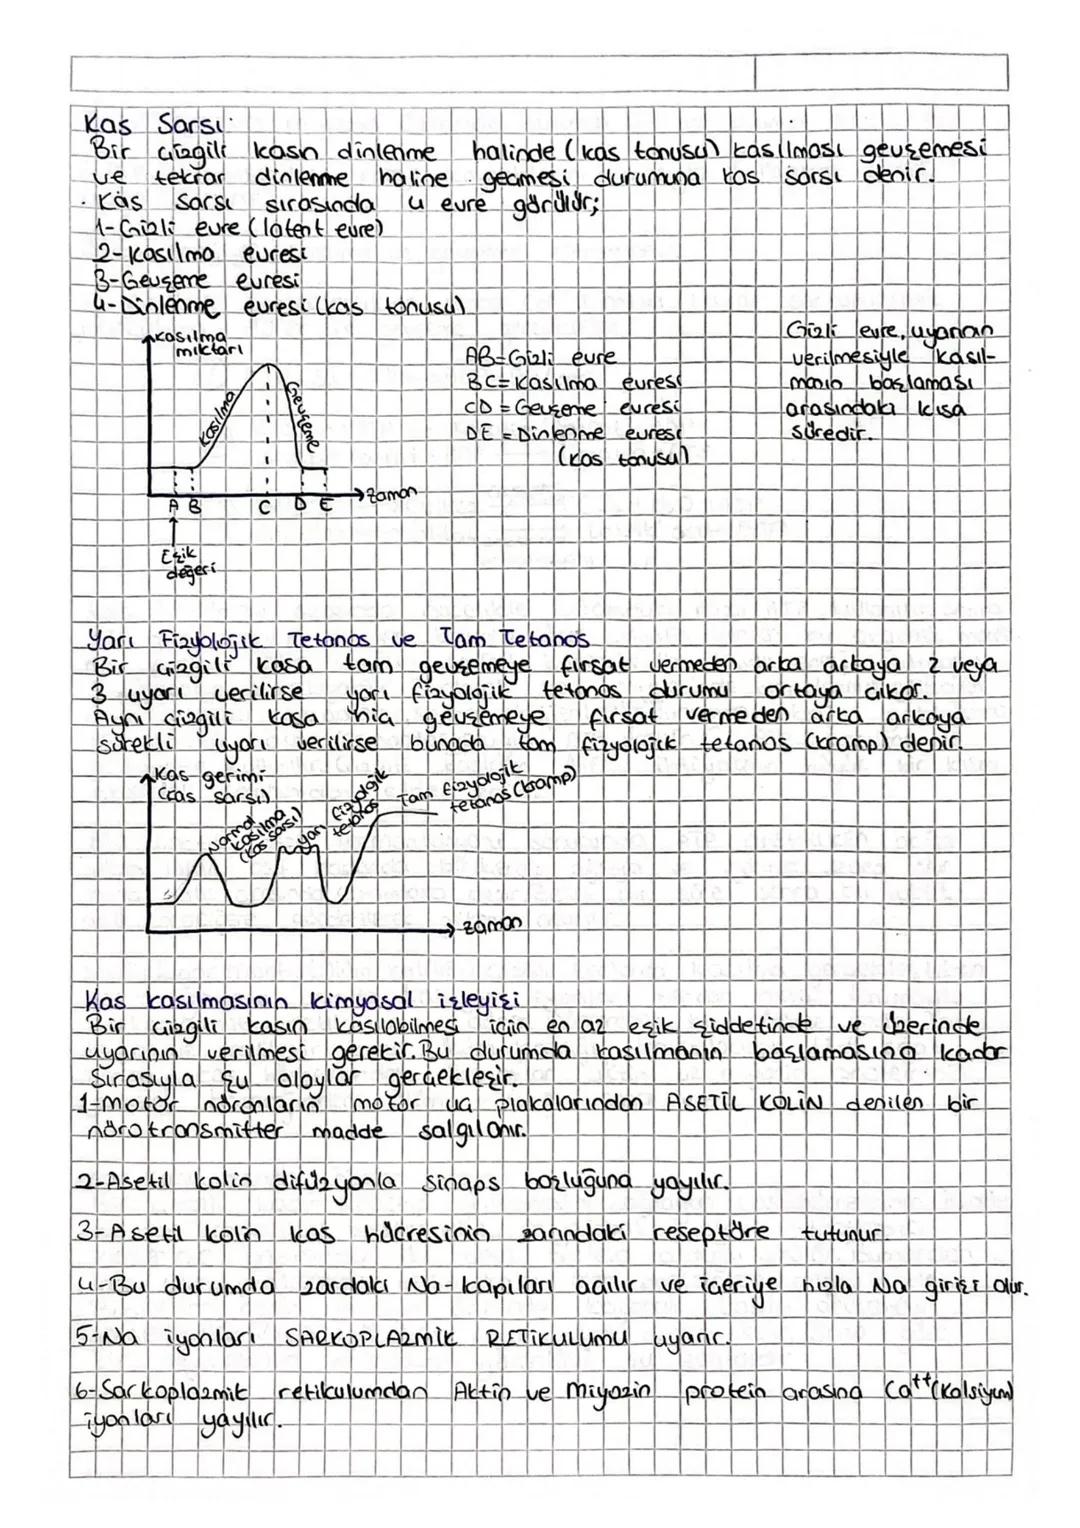 Kas Sarsı:
Bir çizgili kasın dinlenme halinde (kas tonusu) kasılması gevşemesi
ve tekrar dinlenme haline geçmesi durumuna kas sarsı denir.
. Kas Sarsı sırasında 4 evre görülür;
1-Gizli evre (latent evre)
2-Kasılma evresi
3-Gevşeme evresi
4-Dinlenme evresi (kas tonusu)
Kasılma
miktarı
Kasılma
Gevşeme
A B C D E
zaman
Eşik
değeri
AB=Gizli evre
BC=Kasılma evresi
CD=Gevşeme evresi
DE=Dinlenme evresi
(kas tonusu)
Gizli evre, uyarının
verilmesiyle kasıl-
manın başlaması
arasındaki kısa
süredir.
Yarı Fizyolojik Tetanos ve Tam Tetanos
Bir çizgili kasa tam gevşemeye fırsat vermeden arka arkaya 2 veya
3 uyarı verilirse yarı fizyolojik tetanos durumu ortaya çıkar.
Aynı çizgili kasa hiç gevşemeye fırsat vermeden arka arkaya
sürekli uyarı verilirse bunada tam fizyolojik tetanos (kramp) denir.
Kas gerimi
(kas sarsı)
Normal
kasılma
(kas sarsı)
yarı fizyolojik
tetanos
Tam fizyolojik
tetanos (kramp)
zaman
Kas kasılmasının kimyasal işleyişi
Bir çizgili kasın kasılabilmesi için en az eşik şiddetinde ve üzerinde
uyarının verilmesi gerekir. Bu durumda kasılmanın başlamasına kadar
Sırasıyla şu olaylar gerçekleşir.
1-motor nöronların motor uç plakalarından ASETİL KOLİN denilen bir
nörotransmitter madde salgılanır.
2-Asetil kolin difüzyonla sinaps boşluğuna yayılır.
3-Asetil kolin kas hücresinin zarındaki reseptöre tutunur.
4-Bu durumda zardaki Na-kapıları açılır ve içeriye hızla Na girişi olur.
5-Na iyonları SARKOPLAZMİK RETİKULUMU uyarır.
6-Sarkoplazmik retikulumdan Aktin ve Miyozin protein arasına Ca⁺⁺(Kalsiyum)
iyonları yayılır.